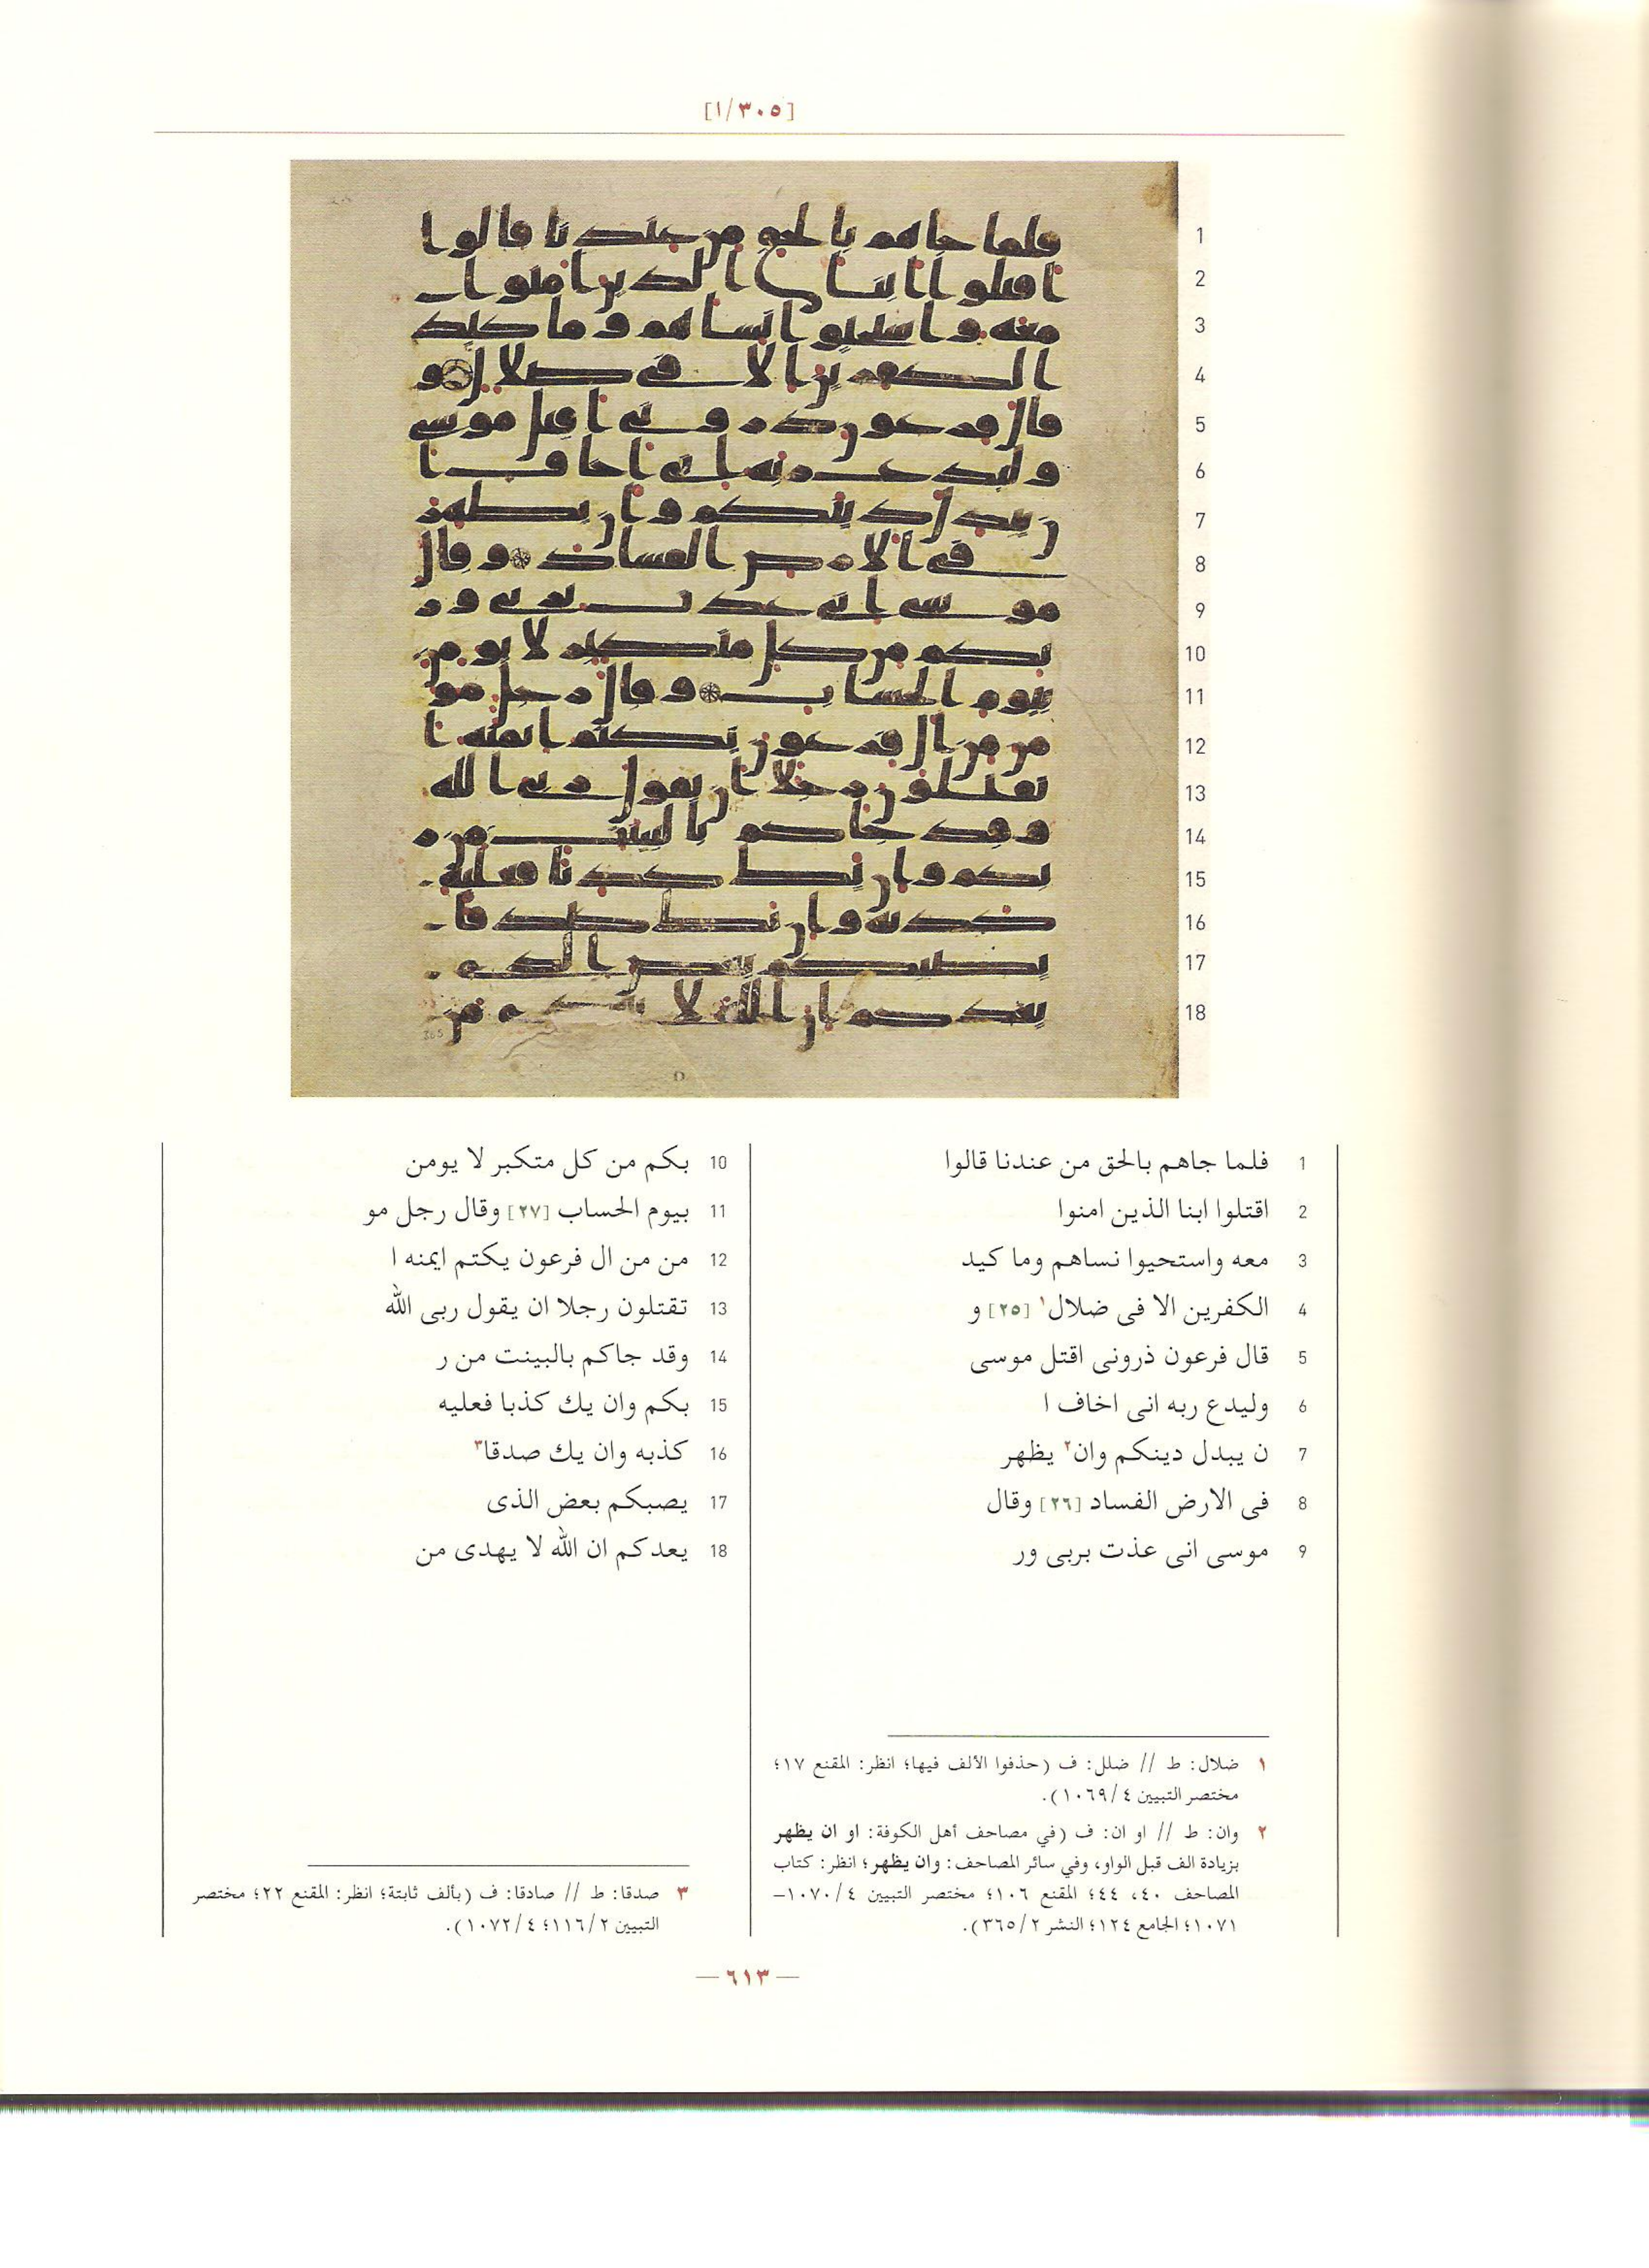 [١/٣٠٥]
1 فلما جاهم بالحق من عندنا قالوا
2 اقتلوا ابنا الذين امنوا
3 معه واستحيوا نساهم وما كيد
4 الكفرين الا فى ضلال١ [٢٥] و
5 قال فرعون ذرونى اقتل موسى
6 وليدع ربه انى اخاف ا
7 ن يبدل دينكم وان٢ يظهر
8 فى الارض الفساد [٢٦] وقال
9 موسى انى عذت بربى ور
10 بكم من كل متكبر لا يومن
11 بيوم الحساب [٢٧] وقال رجل مو
12 من من ال فرعون يكتم ايمنه ا
13 تقتلون رجلا ان يقول ربى الله
14 وقد جاكم بالبينت من ر
15 بكم وان يك كذبا فعليه
16 كذبه وان يك صدقا٣
17 يصبكم بعض الذى
18 يعدكم ان الله لا يهدى من
١ ضلال: ط // ضلل: ف (حذفوا الألف فيها؛ انظر: المقنع ١٧؛
مختصر التبيين ١٠٦٩/٤).
٢ وان: ط // او ان: ف (في مصاحف أهل الكوفة: او ان يظهر
بزيادة الف قبل الواو، وفي سائر المصاحف: وان يظهر؛ انظر: كتاب
المصاحف ٤٠، ٤٤؛ المقنع ١٠٦؛ مختصر التبيين ١٠٧٠/٤–
١٠٧١؛ الجامع ١٢٤؛ النشر ٣٦٥/٢).
٣ صدقا: ط // صادقا: ف (بألف ثابتة؛ انظر: المقنع ٢٢؛ مختصر
التبيين ١١٦/٢؛ ١٠٧٢/٤).
— ٦١٣ —